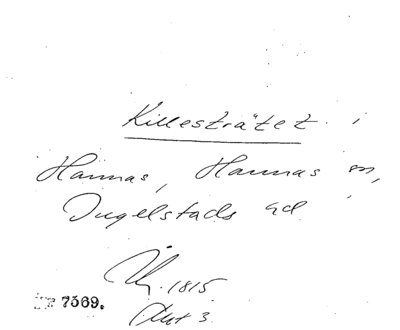 Killesträtet i
Hannas, Hannas sn,
Ingelstads hd.
1815
Akt 3
7569.